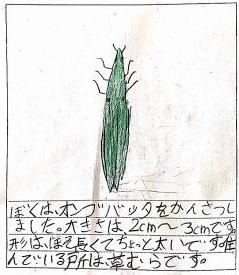 ぼくは、オンブバッタをかんさつし
ました。大きさは2cm～3cmです。
形は、ほそ長くてちょっと太いです。住
んでいる所は草むらです。